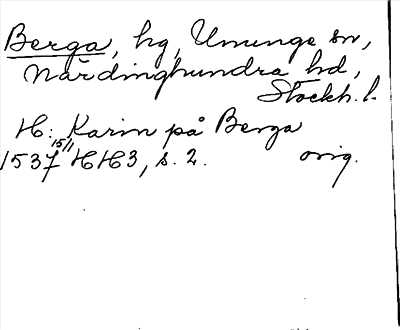 Berga, hg, Ununge sn,
Närdinghundra hd,
Stockh. l.
H: Karin på Berga
1537 15/1 HH3, s. 2. orig.